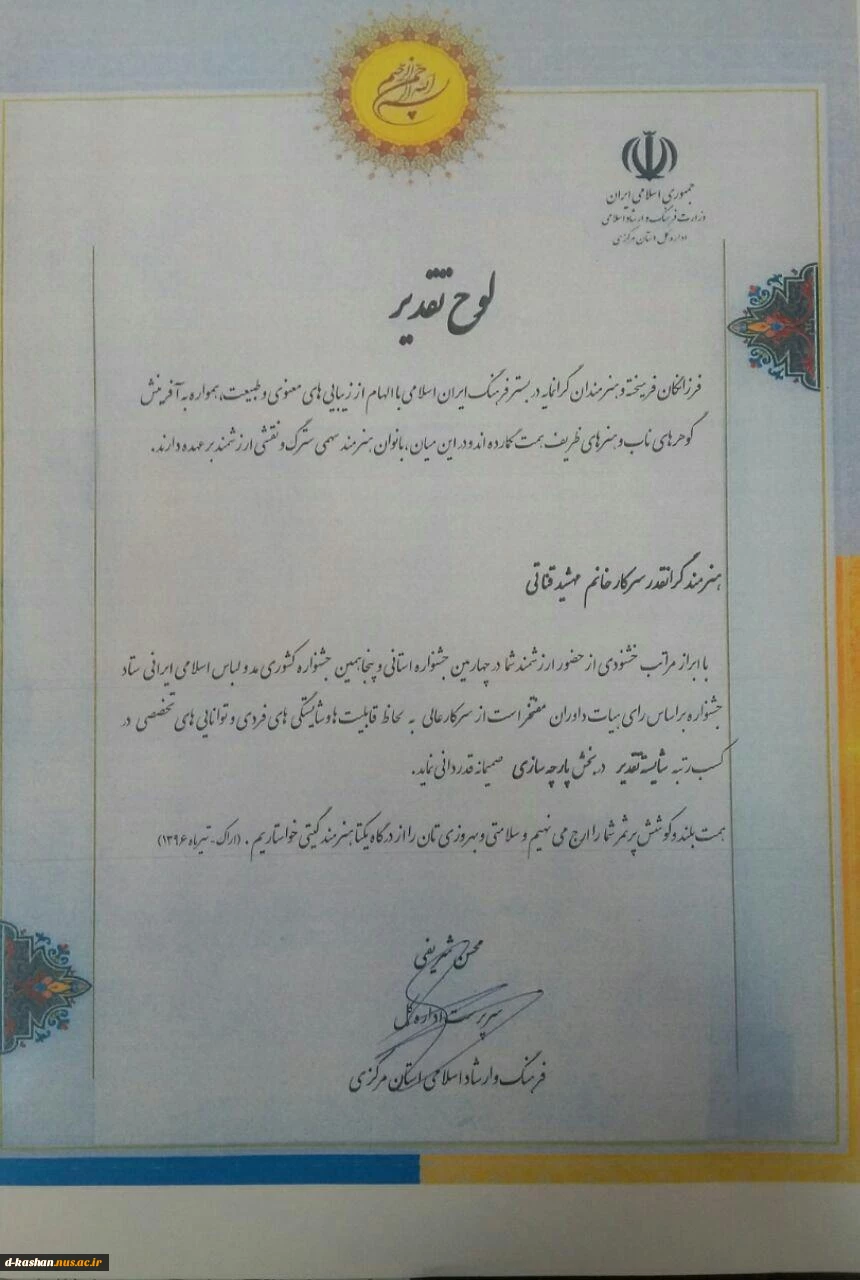 بسم الله الرحمن الرحیم
جمهوری اسلامی ایران
وزارت فرهنگ و ارشاد اسلامی
اداره کل استان مرکزی
لوح تقدیر
فرزانگان فرهیخته و هنرمندان گرانمایه در بستر فرهنگ ایران اسلامی با الهام از زیبایی های معنوی و طبیعت، همواره به آفرینش
گوهرهای ناب و هنرهای ظریف همت گمارده اند و در این میان، بانوان هنرمند سهمی سترگ و نقشی ارزشمند بر عهده دارند.
هنرمند گرانقدر سرکار خانم مهشید قناتی
با ابراز مراتب خشنودی از حضور ارزشمند شما در چهارمین جشنواره استانی و پنجاهمین جشنواره کشوری مد و لباس اسلامی ایرانی ستاد
جشنواره بر اساس رای هیات داوران مفتخر است از سرکار عالی به لحاظ قابلیت ها و شایستگی های فردی و توانایی های تخصصی در
کسب رتبه شایسته تقدیر در بخش پارچه سازی صمیمانه قدردانی نماید.
همت بلند و کوشش پرثمر شما را ارج می نهیم و سلامتی و بهروزی تان را از درگاه یکتا هنرمند گیتی خواستاریم. (اراک - تیرماه ۱۳۹۶)
محسن شریفی
سرپرست اداره کل
فرهنگ و ارشاد اسلامی استان مرکزی
d-kashan.nus.ac.ir